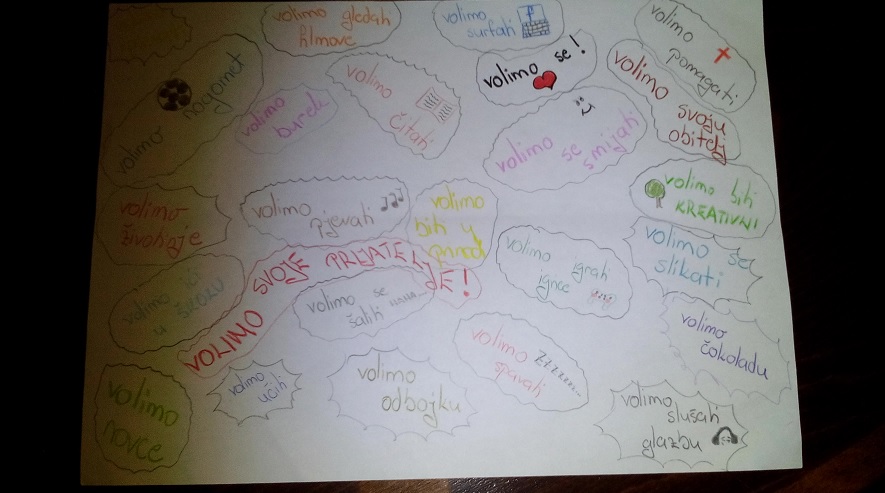 volimo gledati
filmove
volimo
surfati
f
volimo
pomagati
volimo nogomet
volimo
burek
volimo
čitati
volimo se!
volimo
svoju
obitelj
volimo
se smijati
volimo biti
KREATIVNI
volimo
životinje
volimo
pjevati
volimo
biti u
prirodi
volimo se
slikati
volimo ići
u ŠKOLU
VOLIMO SVOJE PRIJATELJE!
volimo se
šaliti
volimo igrati
igrice
volimo
čokoladu
volimo
novce
volimo
učiti
volimo
odbojku
volimo Zzzzzz...
spavati
volimo
slušati
glazbu